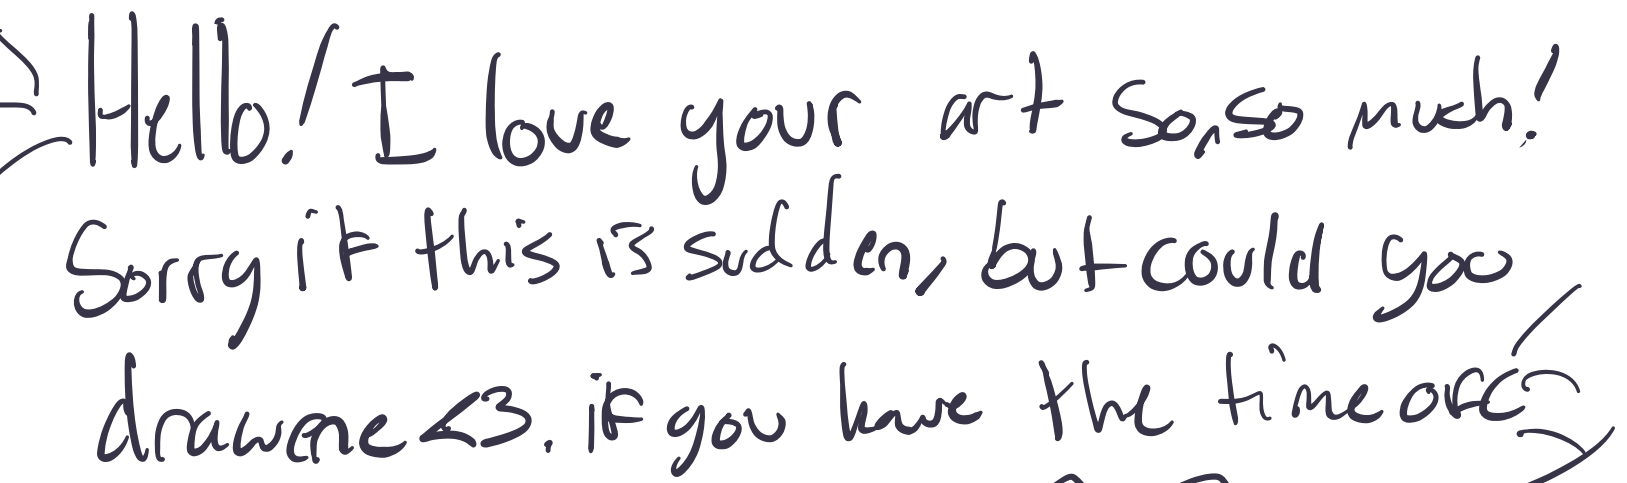 Hello! I love your art so, so much!
Sorry if this is sudden, but could you
draw me <3. if you have the time ofc